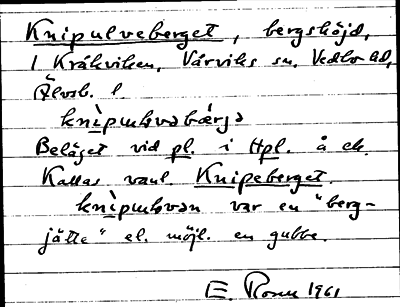 Knipulveberget, bergshöjd,
1 Kråkviken, Vårviks sn, Vedbo hd,
Älvsb. l
knìpuḷvəbærjə
Beläget vid pl. i Hpl. å ek.
Kallas vanl. Knipeberget.
knìpuḷvən var en "berg-
jätte" el. möjl. en gubbe.
E. 1961